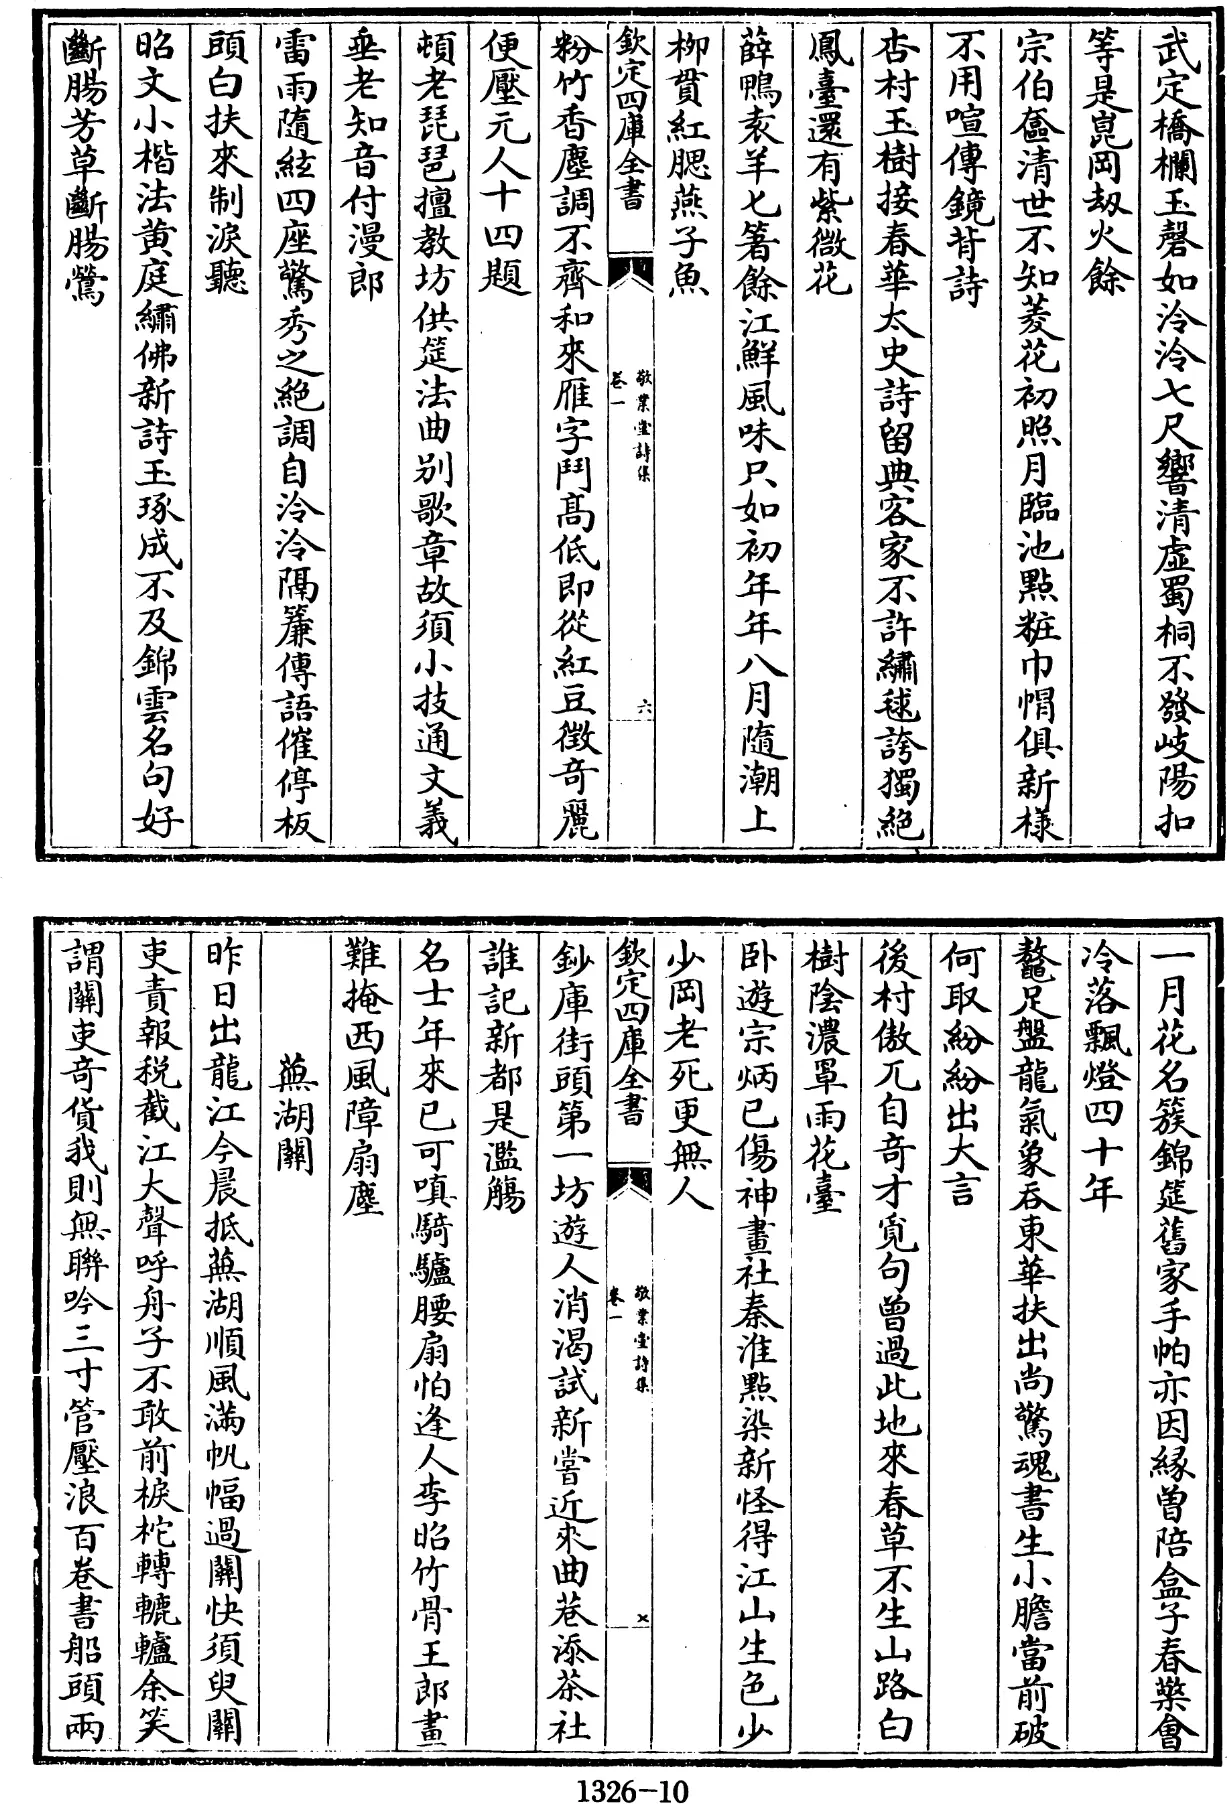 武定橋欄玉磬如泠泠七尺響清虛蜀桐不發岐陽扣
等是崑岡刼火餘
宗伯奩清世不知菱花初照月臨池點粧巾幗俱新様
不用喧傳鏡背詩
杏村玉樹接春華太史詩留典客家不許繡毬誇獨絶
鳳臺還有紫薇花
薛鴨袁羊七箸餘江鮮風味只如初年年八月隨潮上
栁貫紅腮燕子魚
欽定四庫全書
敬業堂詩集
卷一
六
粉竹香塵調不齊和來雁字鬥髙低即從紅豆徴竒麗
便壓元人十四題
頓老琵琶擅教坊供筵法曲别歌章故須小技通文義
垂老知音付漫郎
雷雨隨絃四座驚秀之絶調自泠泠隔簾傳語催停板
頭白扶來制淚聽
昭文小楷法黄庭繡佛新詩玉琢成不及錦雲名句好
斷腸芳草斷腸鶯
一月花名簇錦筵舊家手帕亦因緣曽陪盒子春藥會
冷落飄燈四十年
鼇足盤龍氣象吞東華扶出尚驚魂書生小膽當前破
何取紛紛出大言
後村傲兀自竒才覓句曽過此地來春草不生山路白
樹陰濃罩雨花臺
卧遊宗炳已傷神畫社秦淮點染新怪得江山生色少
少岡老死更無人
欽定四庫全書
敬業堂詩集
卷一
七
鈔庫街頭第一坊遊人消渴試新嘗近來曲巷添茶社
誰記新都是濫觴
名士年來已可嗔騎驢腰扇怕逢人李昭竹骨王郎畫
難掩西風障扇塵
蕪湖關
昨日出龍江今晨抵蕪湖順風滿帆幅過關快須臾關
吏責報税截江大聲呼舟子不敢前捩柁轉轆轤余笑
謂關吏竒貨我則無聨吟三寸管壓浪百卷書船頭兩
1326-10